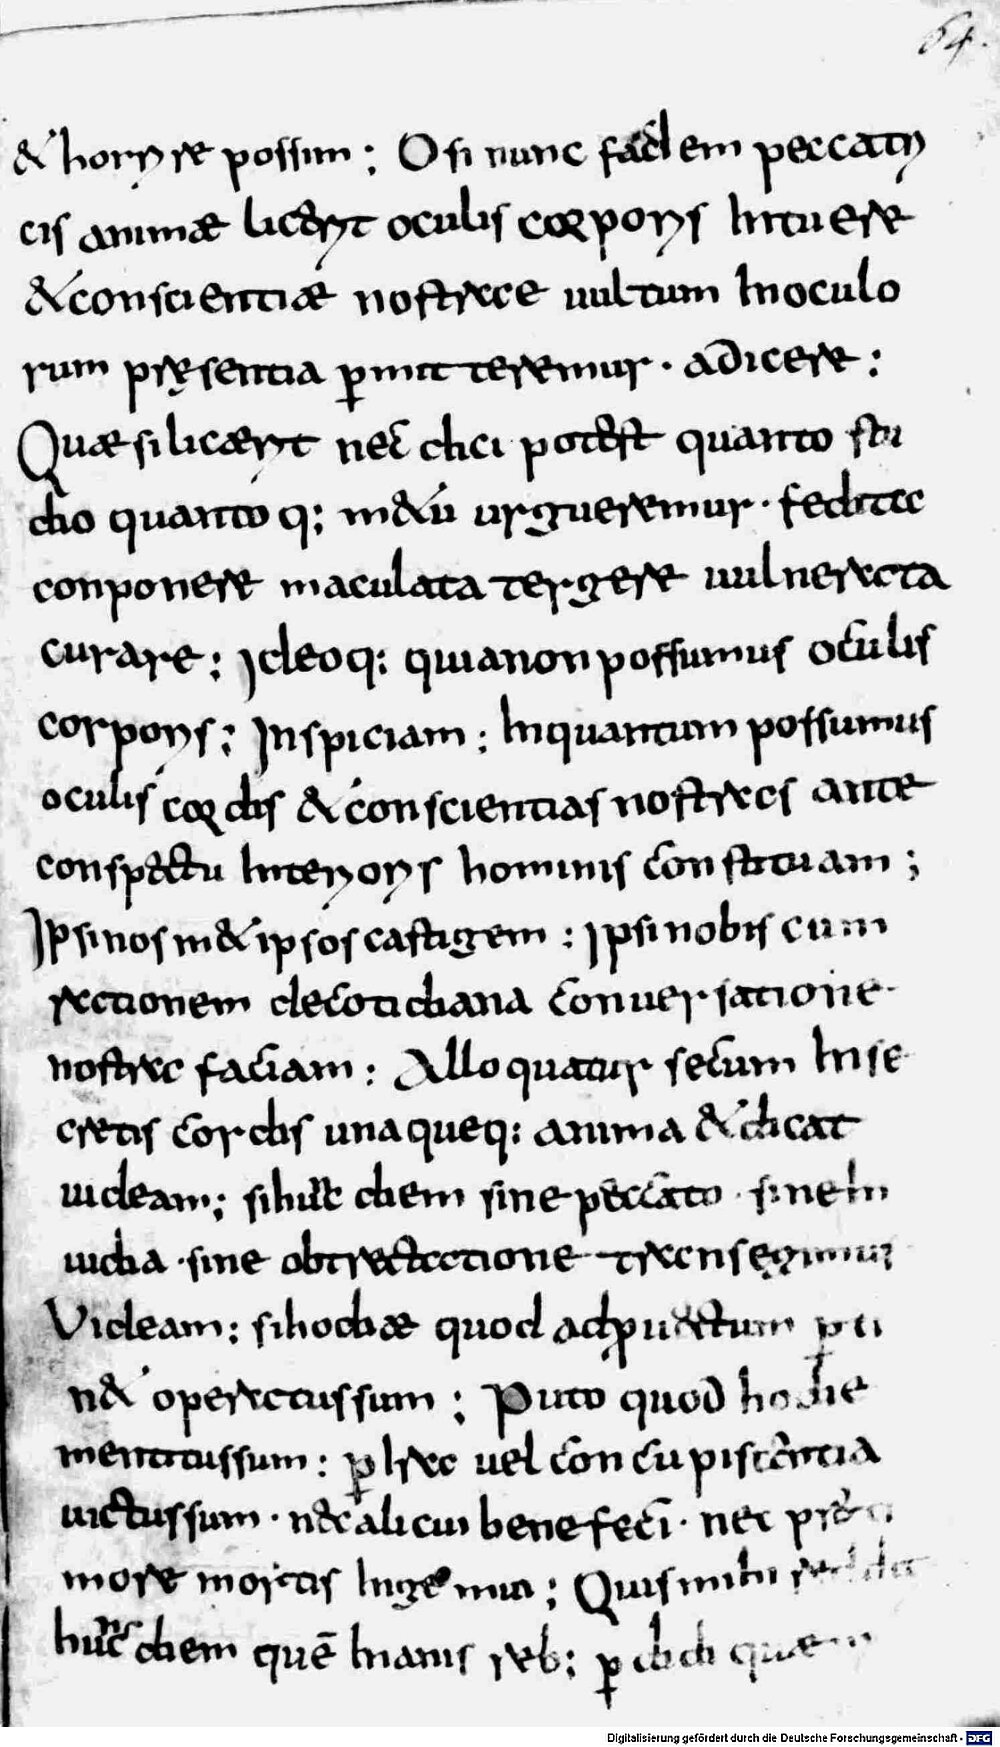 64.
& horrere possim ; O si nunc faciem peccatri
cis animæ liceret oculis corporis Intuere
& conscientiæ nostrae uultum In oculo
rum pręsentia p̱mitteremur · adicere :
Quæ si licæret nec dici potest quanto stu
dio quanto q; m&u urgueremur · fedata
conponere maculata tergere uulnerata
curare ; Ideoq; quia non possumus oculis
corporis ; Inspiciam ; Inquantum possumus
oculis cordis & conscientias nostras ante
conspectu Interioris hominis constituam ;
Ipsi nos m& ipsos castigem ; Ipsi nobiscum
rectionem de cotidiana conuersatione
nostra faciam : Alloquatur secum Inse
cretis cordis una queq; anima & dicat
uideam ; si hunc diem sine peccato · sine In
uidia · sine obtrectatione transegimus
Videam ; si hodiæ quod ad profectum p̱ti
n& operatus sum ; Puto quod hodie
mentitus sum ; p̱ Ira uel concupiscentia
uictus sum · nec alicui bene feci · nec pro ti
more mortis Ingemui ; Quis mihi reddit
hunc diem quē Inanis reb; p̱didi quæ
Digitalisierung gefördert durch die Deutsche Forschungsgemeinschaft - DFG